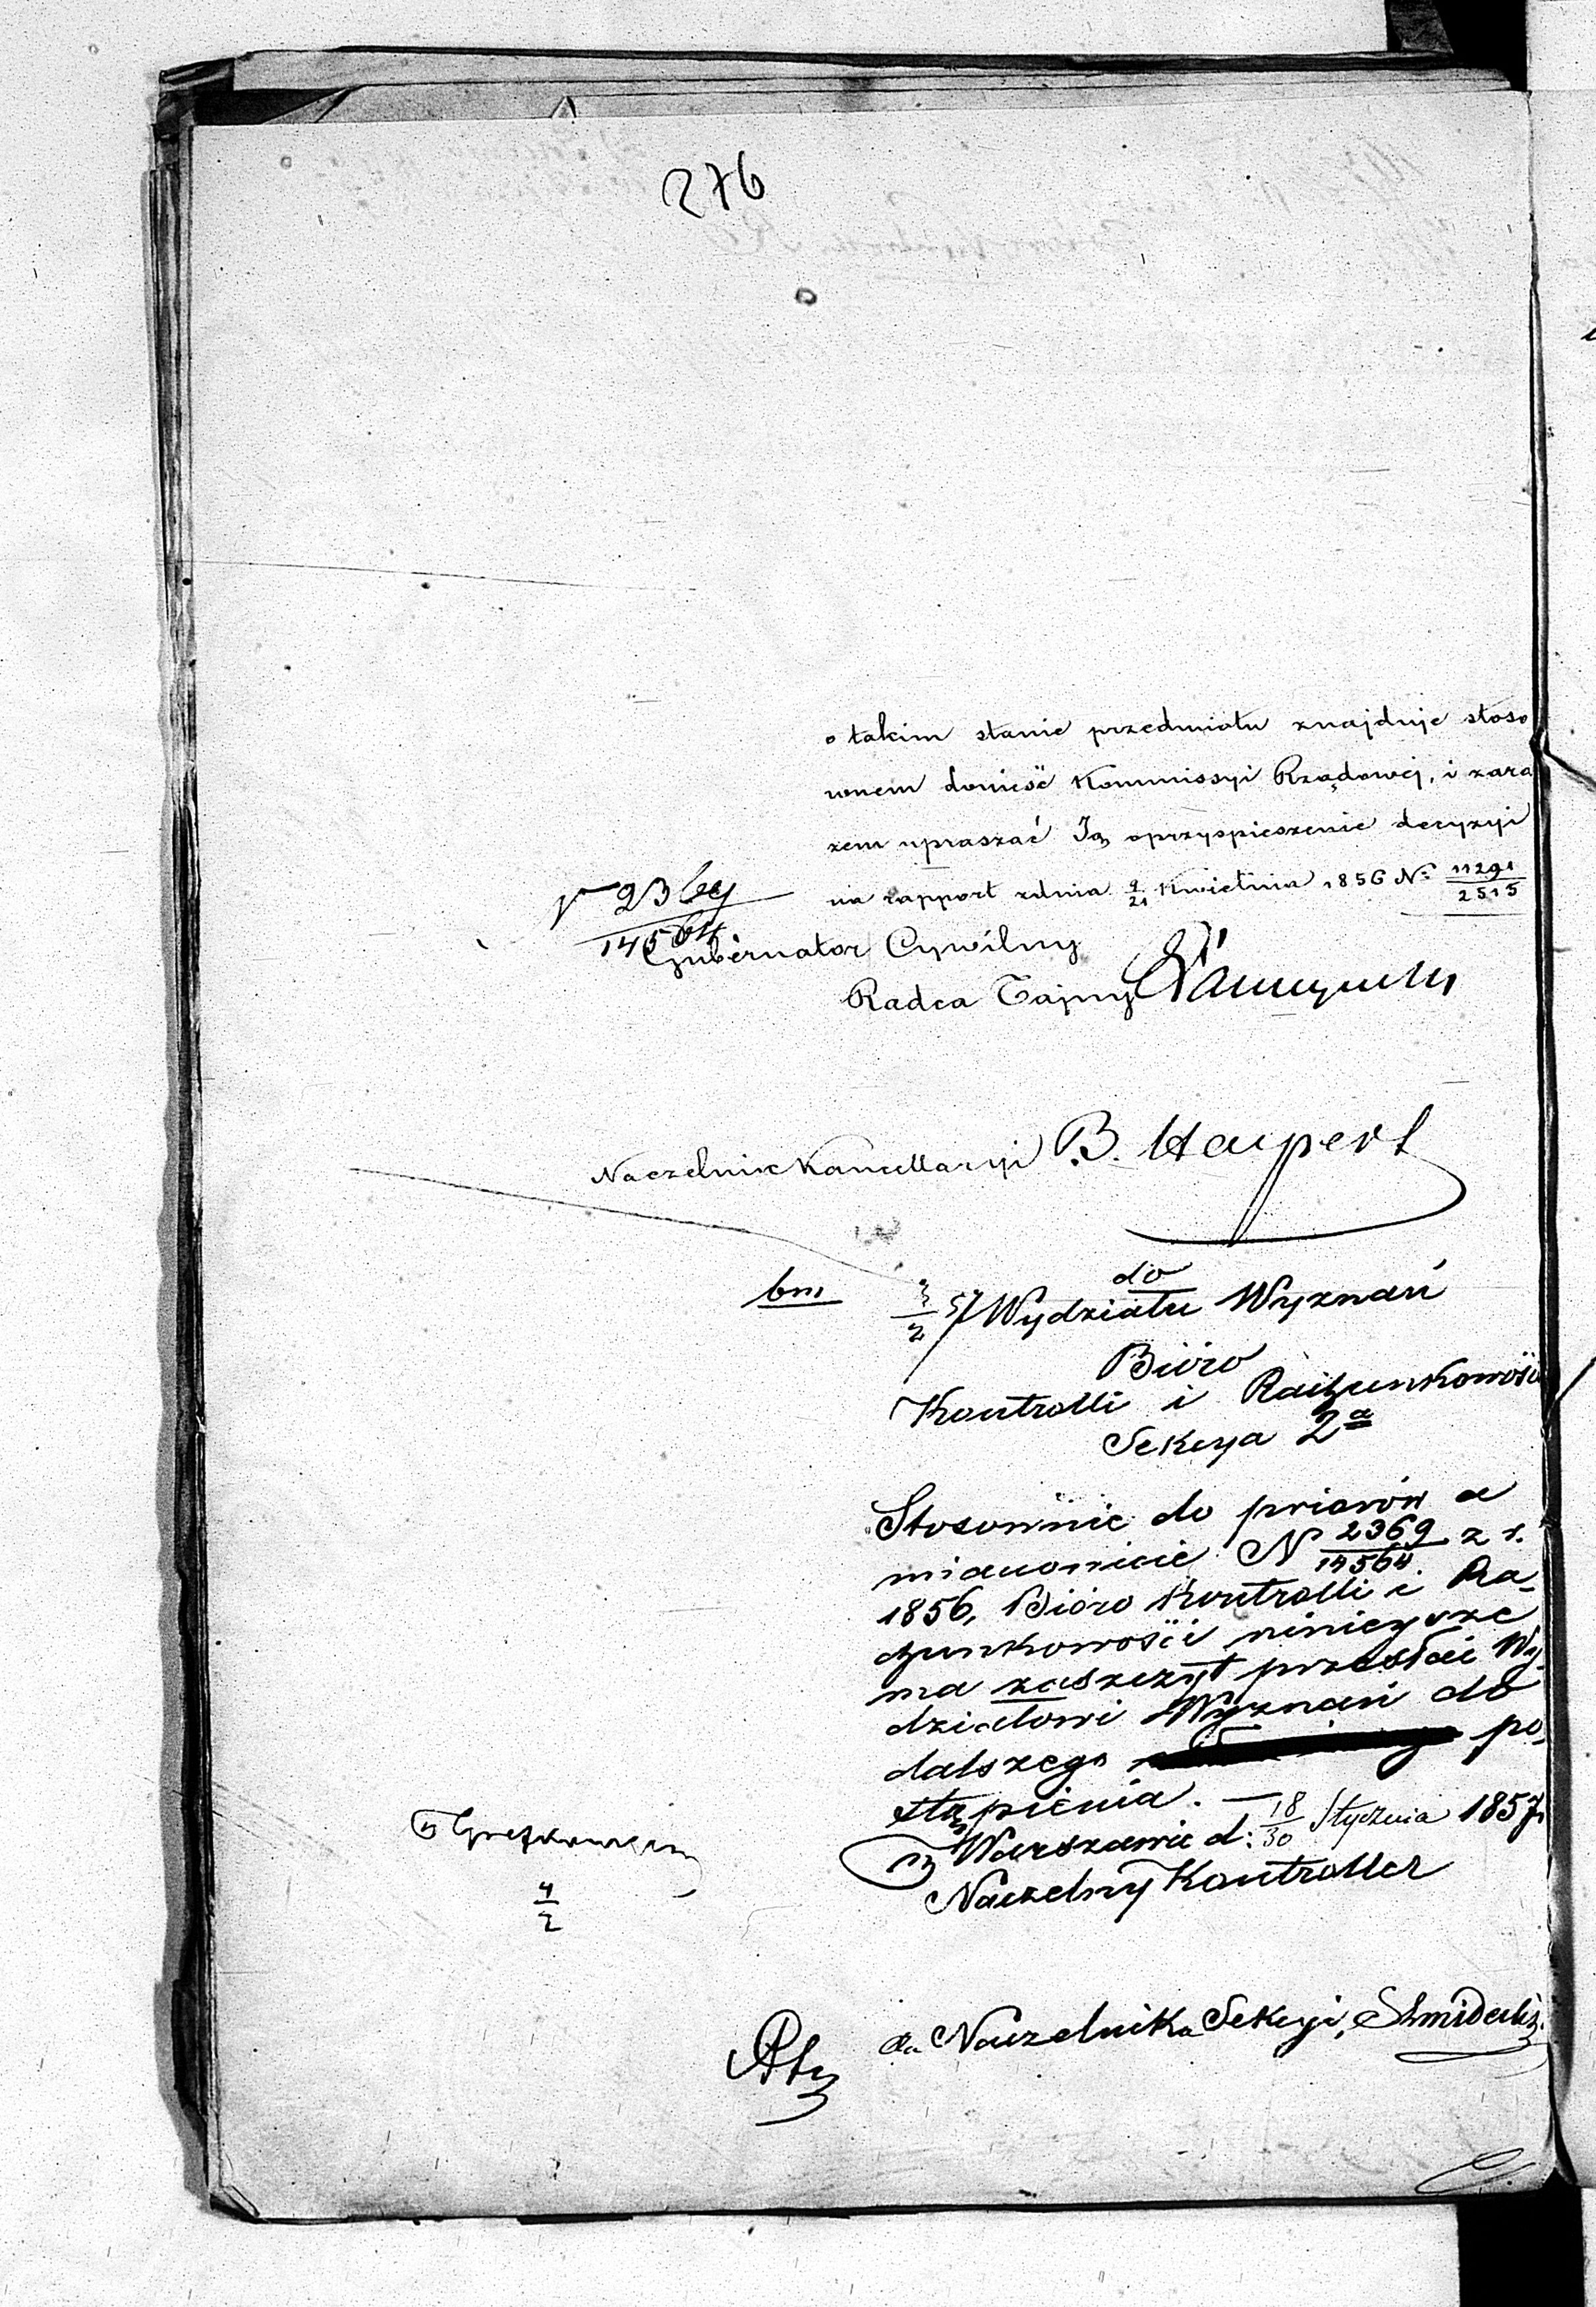 276
o takim stanie przedmiotu znajduje stoso
wnem donieść Kommissyi Rządowej, i zara
zem upraszać Ją o przyspieszenie decyzyi
na rapport z dnia 9/21 Kwietnia 1856 N: 11291/2515
2369/14564
Gubernator Cywilny
Radca Tajny
Naczelnik Kancellaryi B. Haupert
do
bm 3/2 57 Wydziału Wyznań
Bióro
Kontrolli i Rachunkowości
Sekcya 2a
Stosownie do priorów a
mianowicie N 2369/14564 z r.
1856, Bióro Kontrolli i Ra-
chunkowości niniejsze
ma zaszczyt przesłać Wy-
działowi Wyznań do
dalszego po-
stąpienia. —
w Warszawie d: 18/30 Stycznia 1857 r
Naczelny Kontroller
4/2
za Naczelnika Sekcyi,